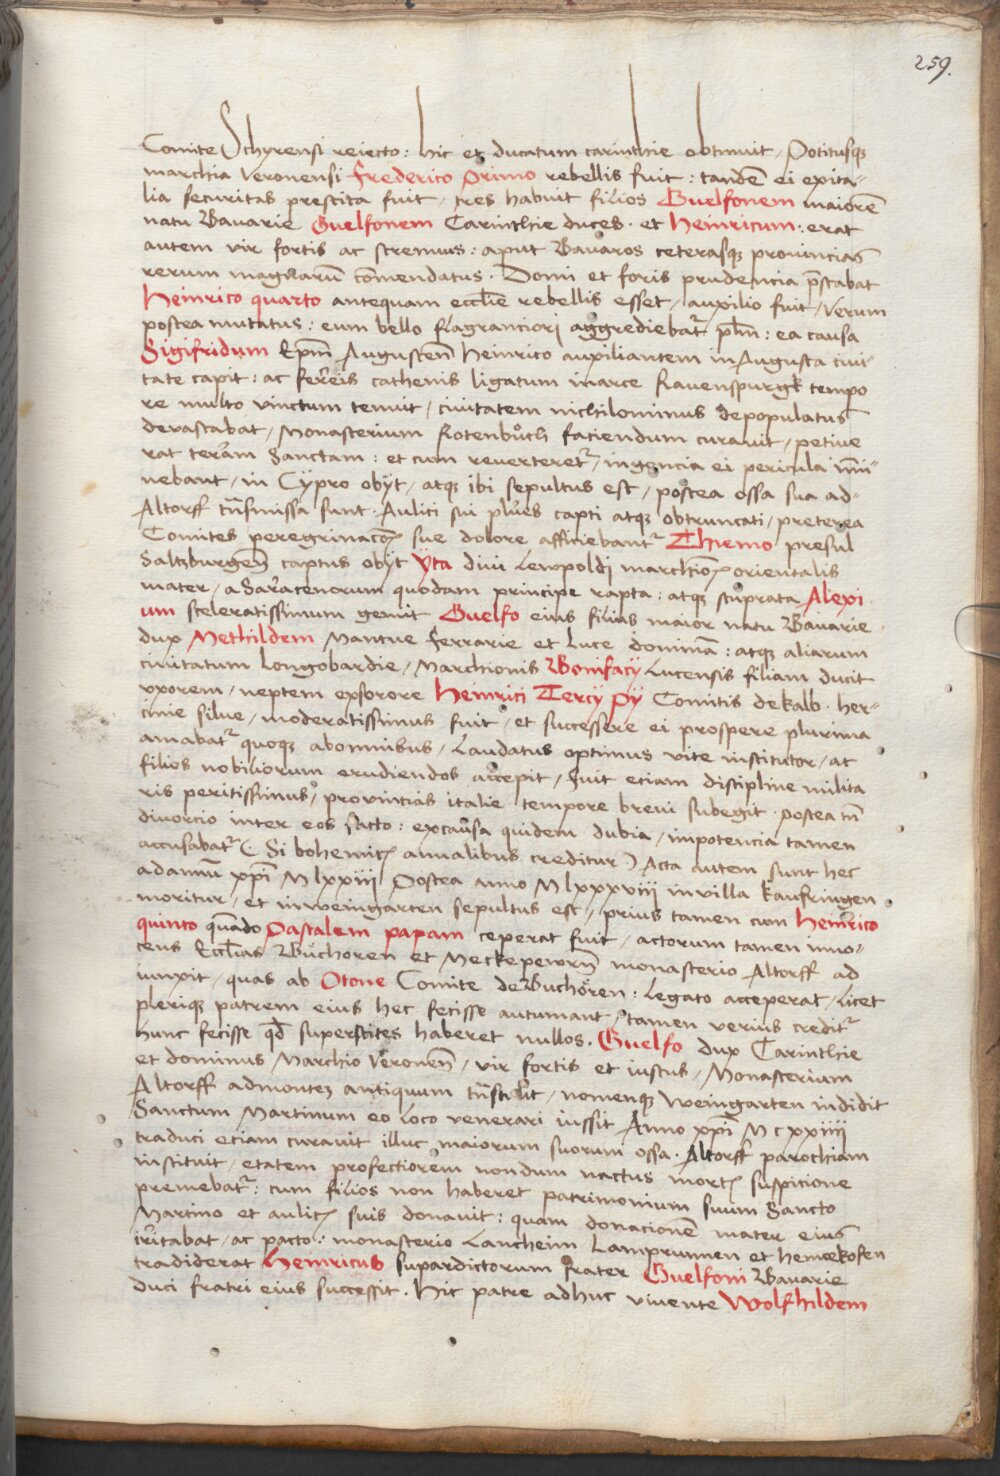 259.
Comite Schyrensi reiecto : hic et ducatum carinthie obtinuit / Potitusqꝫ
marchia Veronensi Frederico Primo rebellis fuit : tandē ei expita-
lia securitas prestita fuit / tres habuit filios Guelfonem maiorē
natu Bauarie Guelfonem Carinthie duces · et Heinricum : erat
autem vir fortis ac strenuus : aput Bauaros ceterasqꝫ prouincias
rerum magnarū cōmendatus · Domi et foris prudencia p̄stabat
Heinrico quarto antequam eccl̄ie rebellis esset / auxilio fuit / Verum
postea mutatus : eum bello flagranciori aggrediebat᷑ : ea causa
Sigifridum Ep̄m Augusten̄ Heinrico auxiliantem in Augusta ciui-
tate capit : ac ferreis cathenis ligatum in arce Rauenspurgk tempo
re multo vinctum tenuit / ciuitatem nichilominus depopulatus
deuastabat / Monasterium Rotenbůch faciendum curauit / petiue
rat terram Sanctam : et cum reuerteret᷑ / ingencia ei pericula im̄i-
nebant / in Cypro obijt / atqꝫ ibi sepultus est / postea ossa sua ad-
Altorff tn̄smissa sunt · Aulici sui plures capti atqꝫ obtruncati / preterea
Comites peregrinacōꝫ sue dolore afficiebant᷑ Thiemo presul
Saltzburgen̄ captus obijt Yta diui Lewpoldi marchiōꝫ orientalis
mater / a Sarracenorum quodam principe rapta : atqꝫ stuprata Alexi
um sceleratissimum genuit Guelfo eius filius maior natu Bauarie
dux Methildem Mantue Ferrarie et Luce dominā : atqꝫ aliarum
ciuitatum Longobardie / Marchionis Bonifacij Lucensis filiam ducit
vxorem / neptem ex sorore Heinrici Tercij Pij Comitis de kalb · her-
cinie silue / moderatissimus fuit / et successere ei prospere plurima
amabat᷑ quoqꝫ ab omnibus / Laudatus optimus vite institutor / ac
filios nobiliorum erudiendos accepit / Fuit etiam discipline milita
ris peritissimus / prouincias italie tempore breui subegit · postea tn̄
diuorcio inter eos facto : ex causa quidem dubia / impotencia tamen
accusabat᷑ ( Si bohemicꝫ annalibus creditur ) Acta autem sunt hec
ad annū xp̄i M lxxiiij Postea anno M lxxxviij in villa kaufringen
moritur / et in weingarten sepultus est / prius tamen cum Heinrico
quinto quādo Pascalem papam ceperat fuit / actorum tamen inno-
cens Eccl̄ias Bůchoren et Meckepewrn̄ monasterio Altorff ad
iunxit / quas ab Otone Comite de Buchŏren : Legato acceperat / licet
pleriqꝫ patrem eius hec fecisse autumant / tamen verius credit᷑
hunc fecisse qd̄ superstites haberet nullos · Guelfo dux Carinthie
et dominus Marchio Veronen̄ / vir fortis et iustus / Monasterium
Altorff ad montez antiquum tn̄stulit / nomenqꝫ weingarten indidit
Sanctum Martinum eo loco venerari iussit Anno xp̄i M c xxiiij
traduci etiam curauit illuc maiorum suorum ossa · Altorff parochiam
instituit / etatem profectiorem nondum nactus mortꝫ suspicione
premebat᷑ : cum filios non haberet patrimonium suum Sancto
Martino et aulicꝫ suis donauit : quam donacionē mater eius
irritabat / ac pacto : monasterio Lancheim Lamprumen et hemekofen
tradiderat Heinricus supradictorum frater Guelfoni Bauarie
duci fratri eius successit · Hic patre adhuc viuente Wolfhildem